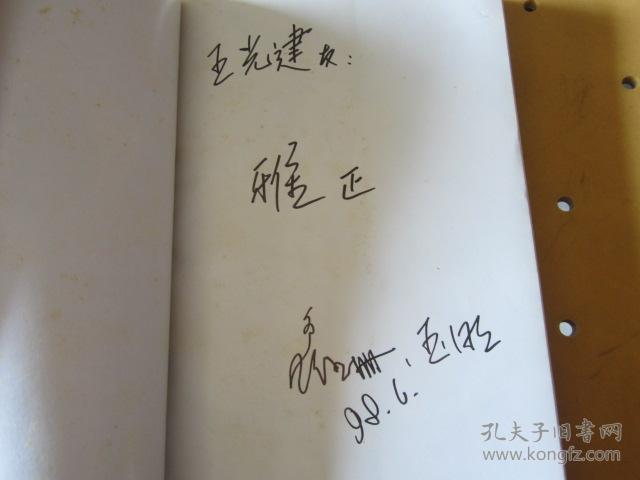 王光建友：
雅正
98.6.
孔夫子旧书网
www.kongfz.com